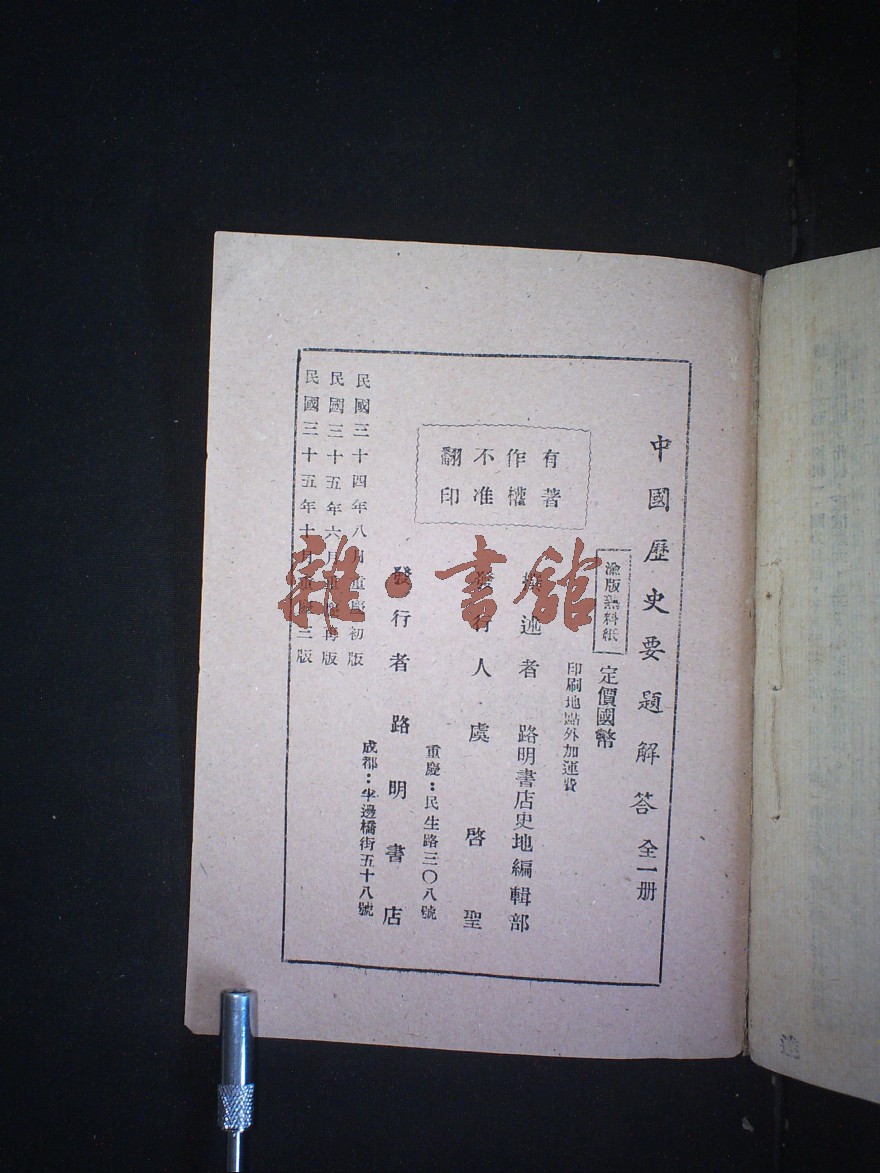 中國歷史要題解答 全一册
渝版熟料紙
定價國幣
印刷地點外加運費
有著
作權
不准
翻印
撰述者 路明書店史地編輯部
發行人 虞啓聖
重慶：民生路三〇八號
發行者 路明書店
成都：半邊橋街五十八號
民國三十四年八月重慶初版
民國三十五年六月重慶再版
民國三十五年十月重慶三版
雜·書館